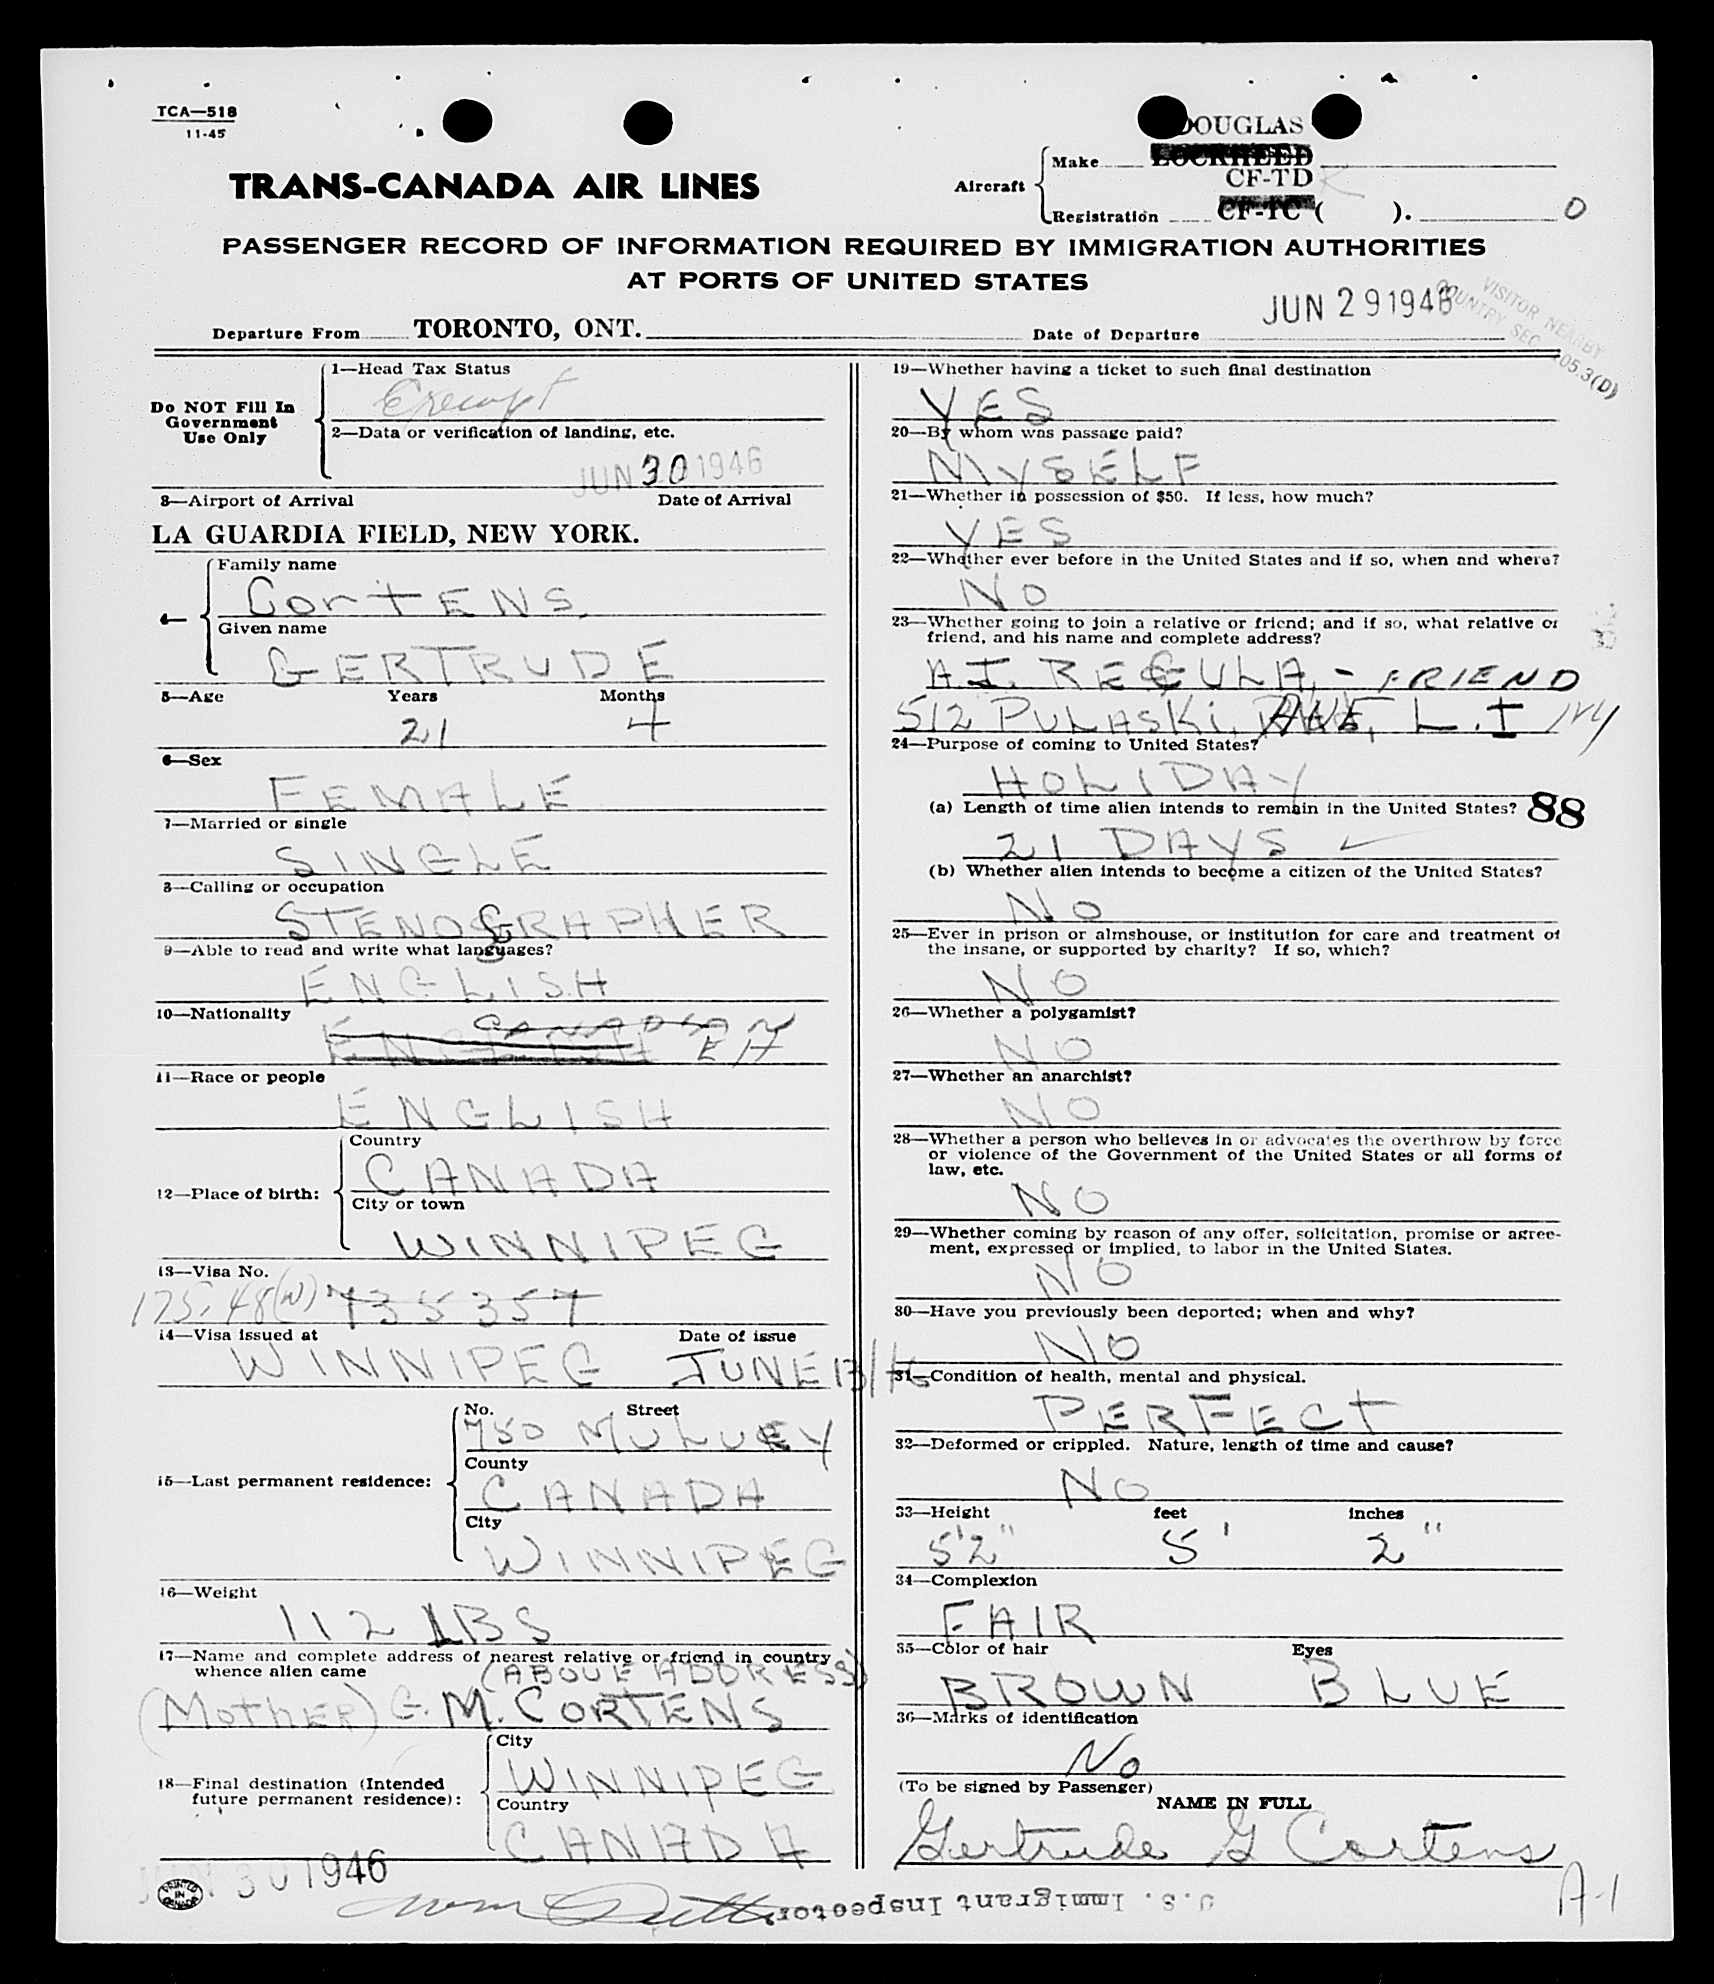 TCA—518
11-45
DOUGLAS
Make LOCKHEED
TRANS-CANADA AIR LINES
Aircraft
CF-TD K
Registration CF-TC ( ). O
PASSENGER RECORD OF INFORMATION REQUIRED BY IMMIGRATION AUTHORITIES
AT PORTS OF UNITED STATES
JUN 29 1946
VISITOR NEARBY
COUNTRY SEC. 105.3(D)
Departure From TORONTO, ONT. Date of Departure
Do NOT Fill In
Government
Use Only
1—Head Tax Status
Exempt
2—Data or verification of landing, etc.
JUN 30 1946
3—Airport of Arrival Date of Arrival
LA GUARDIA FIELD, NEW YORK.
4—
Family name
CorTENS
Given name
GERTRUDE
5—Age Years Months
21 4
6—Sex
FEMALE
7—Married or single
SINGLE
8—Calling or occupation
STENOGRAPHER
9—Able to read and write what languages?
ENGLISH
10—Nationality
CANADIAN
ENGLISH EH
11—Race or people
ENGLISH
12—Place of birth:
Country
CANADA
City or town
WINNIPEG
13—Visa No.
175.48(W) 735357
14—Visa issued at Date of issue
WINNIPEG JUNE 13/46
15—Last permanent residence:
No. Street
750 MULVEY
County
CANADA
City
WINNIPEG
16—Weight
112 LBS
17—Name and complete address of nearest relative or friend in country
whence alien came (ABOVE ADDRESS)
(MOTHER) G. M. CORTENS
18—Final destination (Intended
future permanent residence):
City
WINNIPEG
Country
CANADA
JUN 30 1946
PRINTED
IN
CANADA
U.S. Immigrant Inspector
19—Whether having a ticket to such final destination
YES
20—By whom was passage paid?
MYSELF
21—Whether in possession of $50. If less, how much?
YES
22—Whether ever before in the United States and if so, when and where?
NO
23—Whether going to join a relative or friend; and if so, what relative or
friend, and his name and complete address?
A.I. REGULA, - FRIEND
512 PULASKI, AVE, L.I NY
24—Purpose of coming to United States?
HOLIDAY
(a) Length of time alien intends to remain in the United States? 88
21 DAYS
(b) Whether alien intends to become a citizen of the United States?
NO
25—Ever in prison or almshouse, or institution for care and treatment of
the insane, or supported by charity? If so, which?
NO
26—Whether a polygamist?
NO
27—Whether an anarchist?
NO
28—Whether a person who believes in or advocates the overthrow by force
or violence of the Government of the United States or all forms of
law, etc.
NO
29—Whether coming by reason of any offer, solicitation, promise or agree-
ment, expressed or implied, to labor in the United States.
NO
30—Have you previously been deported; when and why?
NO
31—Condition of health, mental and physical.
PERFECT
32—Deformed or crippled. Nature, length of time and cause?
NO
33—Height feet inches
5'2" 5' 2"
34—Complexion
FAIR
35—Color of hair Eyes
BROWN BLUE
36—Marks of identification
No
(To be signed by Passenger)
NAME IN FULL
Gertrude G Cortens
A-1